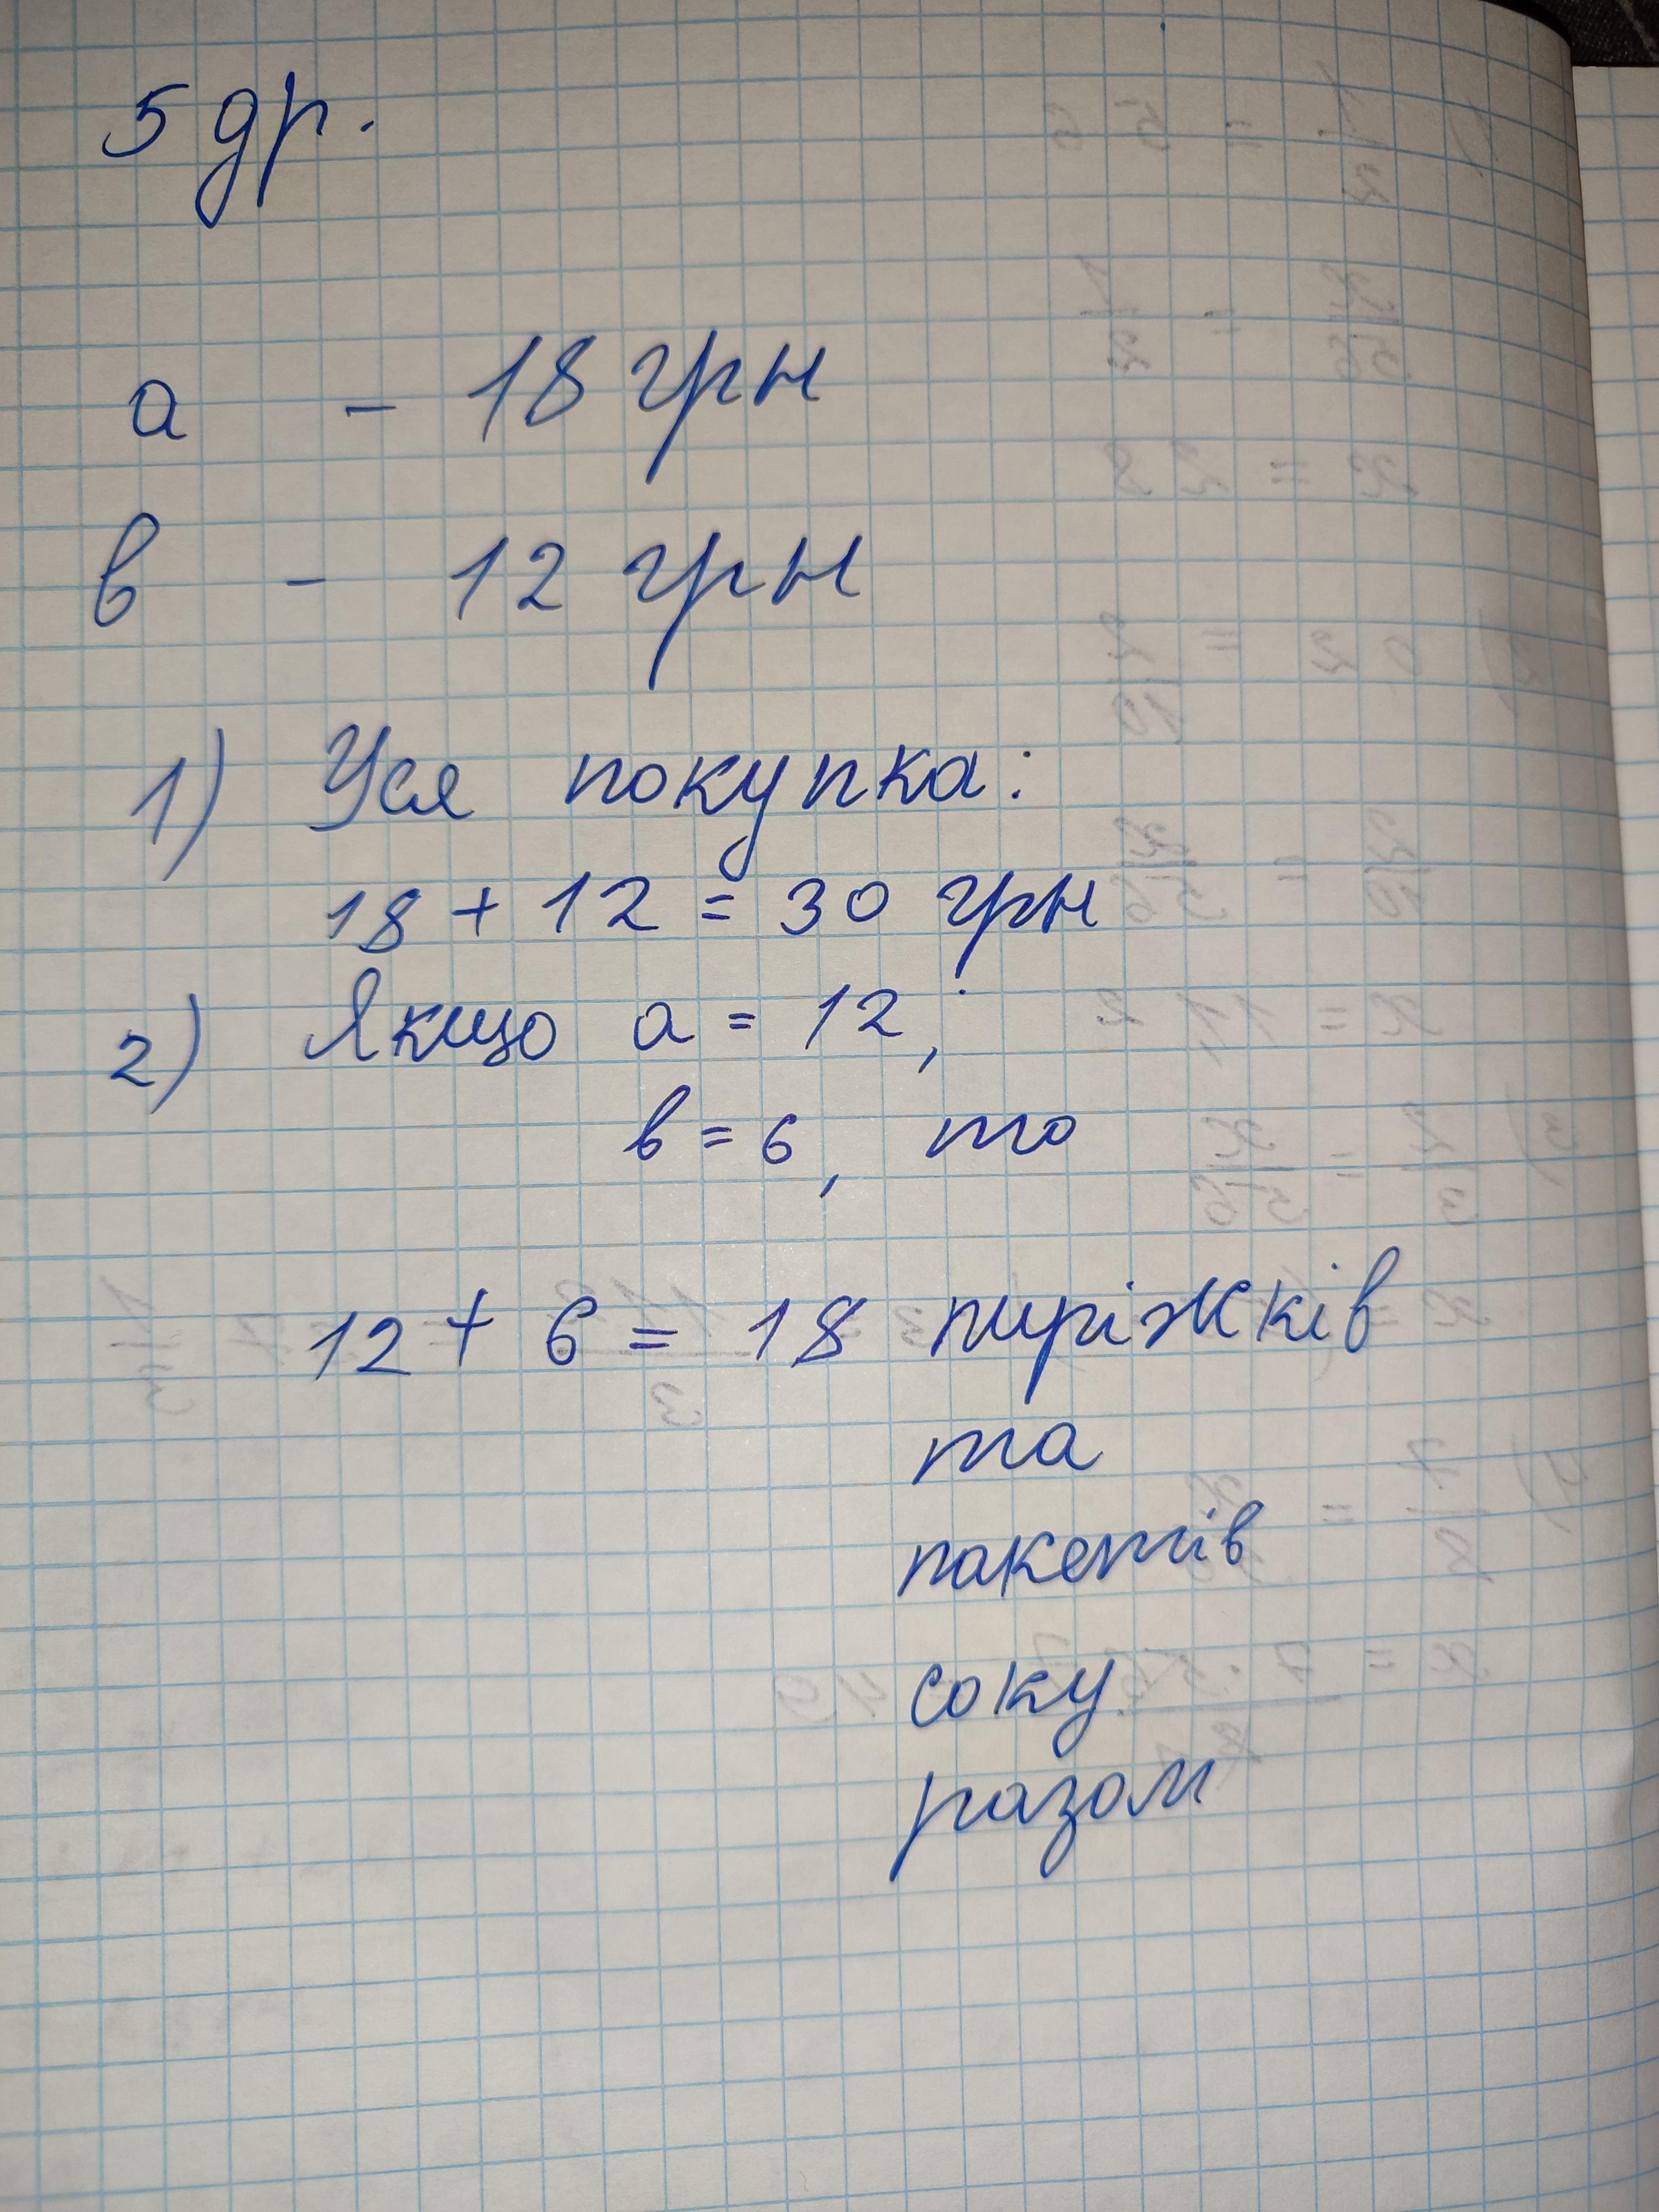 5 др.
а - 18 грн
в - 12 грн
1) Уся покупка:
18 + 12 = 30 грн
2) Якщо а = 12,
в = 6, то
12 + 6 = 18 пиріжків
та
пакетів
соку
разом